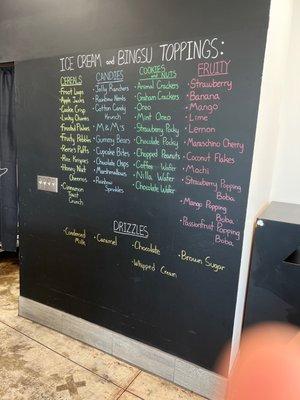 ICE CREAM and BINGSU TOPPINGS:
CEREALS
• Froot Loops
• Apple Jacks
• Cookie Crisp
• Lucky Charms
• Frosted Flakes
• Fruity Pebbles
• Reese's Puffs
• Rice Krispies
• Honey Nut
Cheerios
• Cinnamon
Toast
Crunch
CANDIES
• Jolly Ranchers
• Rainbow Nerds
• Cotton Candy
Crunch
• M & M's
• Gummy Bears
• Cupcake Bites
• Chocolate Chips
• Marshmallows
• Rainbow
Sprinkles
COOKIES
and NUTS
• Animal Crackers
• Graham Crackers
• Oreo
• Mint Oreo
• Strawberry Pocky
• Chocolate Pocky
• Chopped Peanuts
• Coffee Wafer
• Nilla Wafer
• Chocolate Wafer
FRUITY
• Strawberry
• Banana
• Mango
• Lime
• Lemon
• Maraschino Cherry
• Coconut Flakes
• Mochi
• Strawberry Popping
Boba
• Mango Popping
Boba
• Passionfruit Popping
Boba
DRIZZLES
• Condensed
Milk
• Caramel
• Chocolate
• Whipped Cream
• Brown Sugar